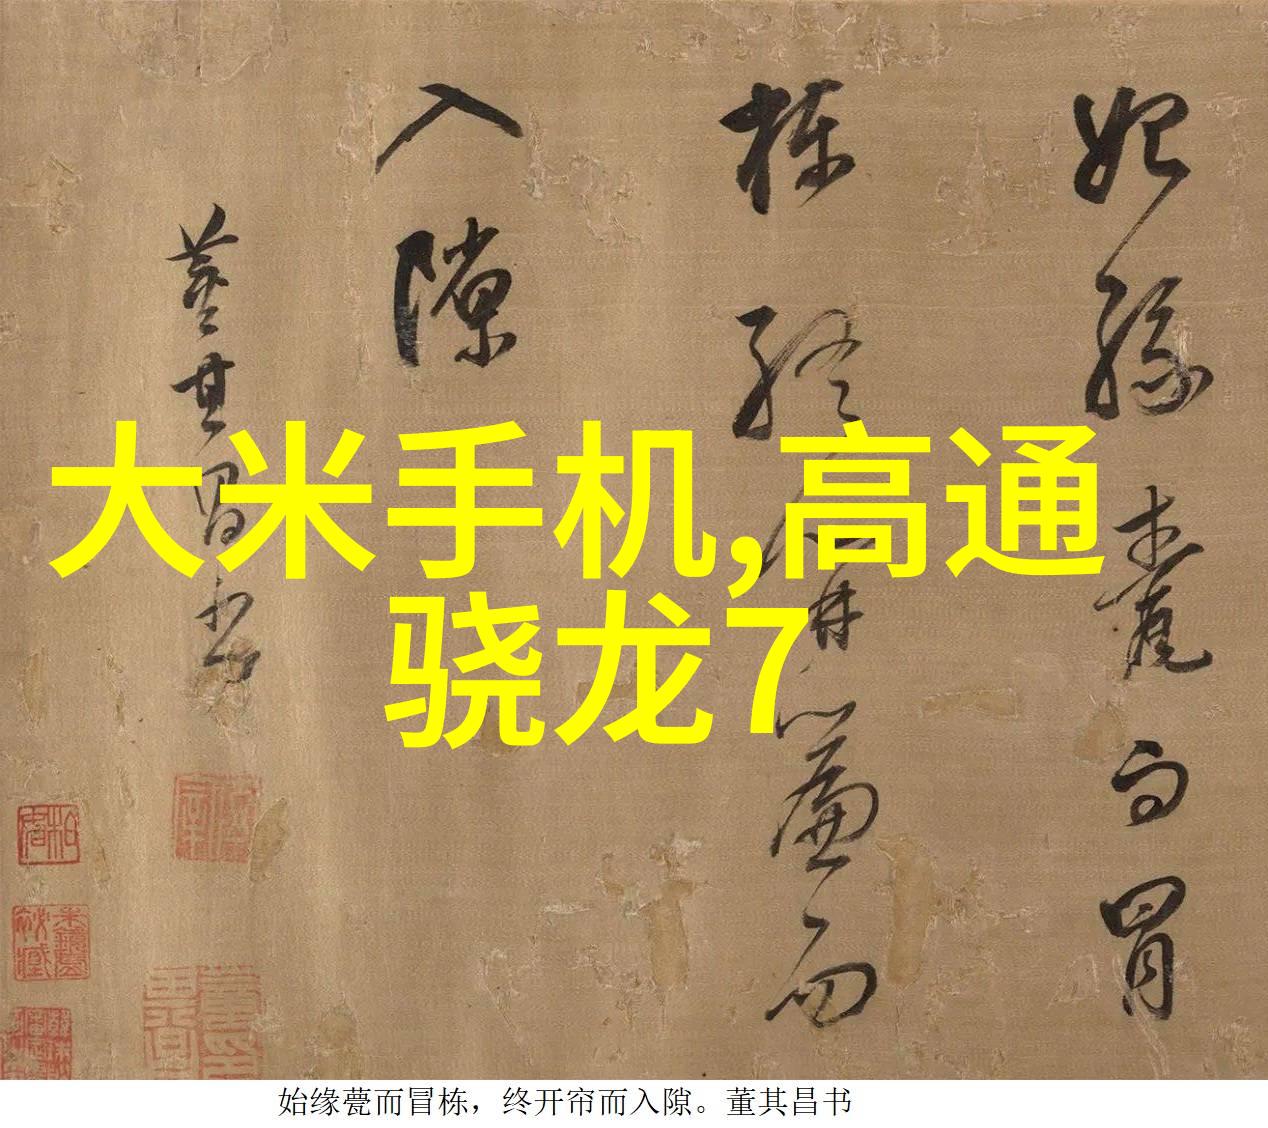 始緣甍而冒
棟終開簾而
入隙
董其昌書
大米手机,高通
骁龙7
始缘甍而冒栋，终开帘而入隙。董其昌书